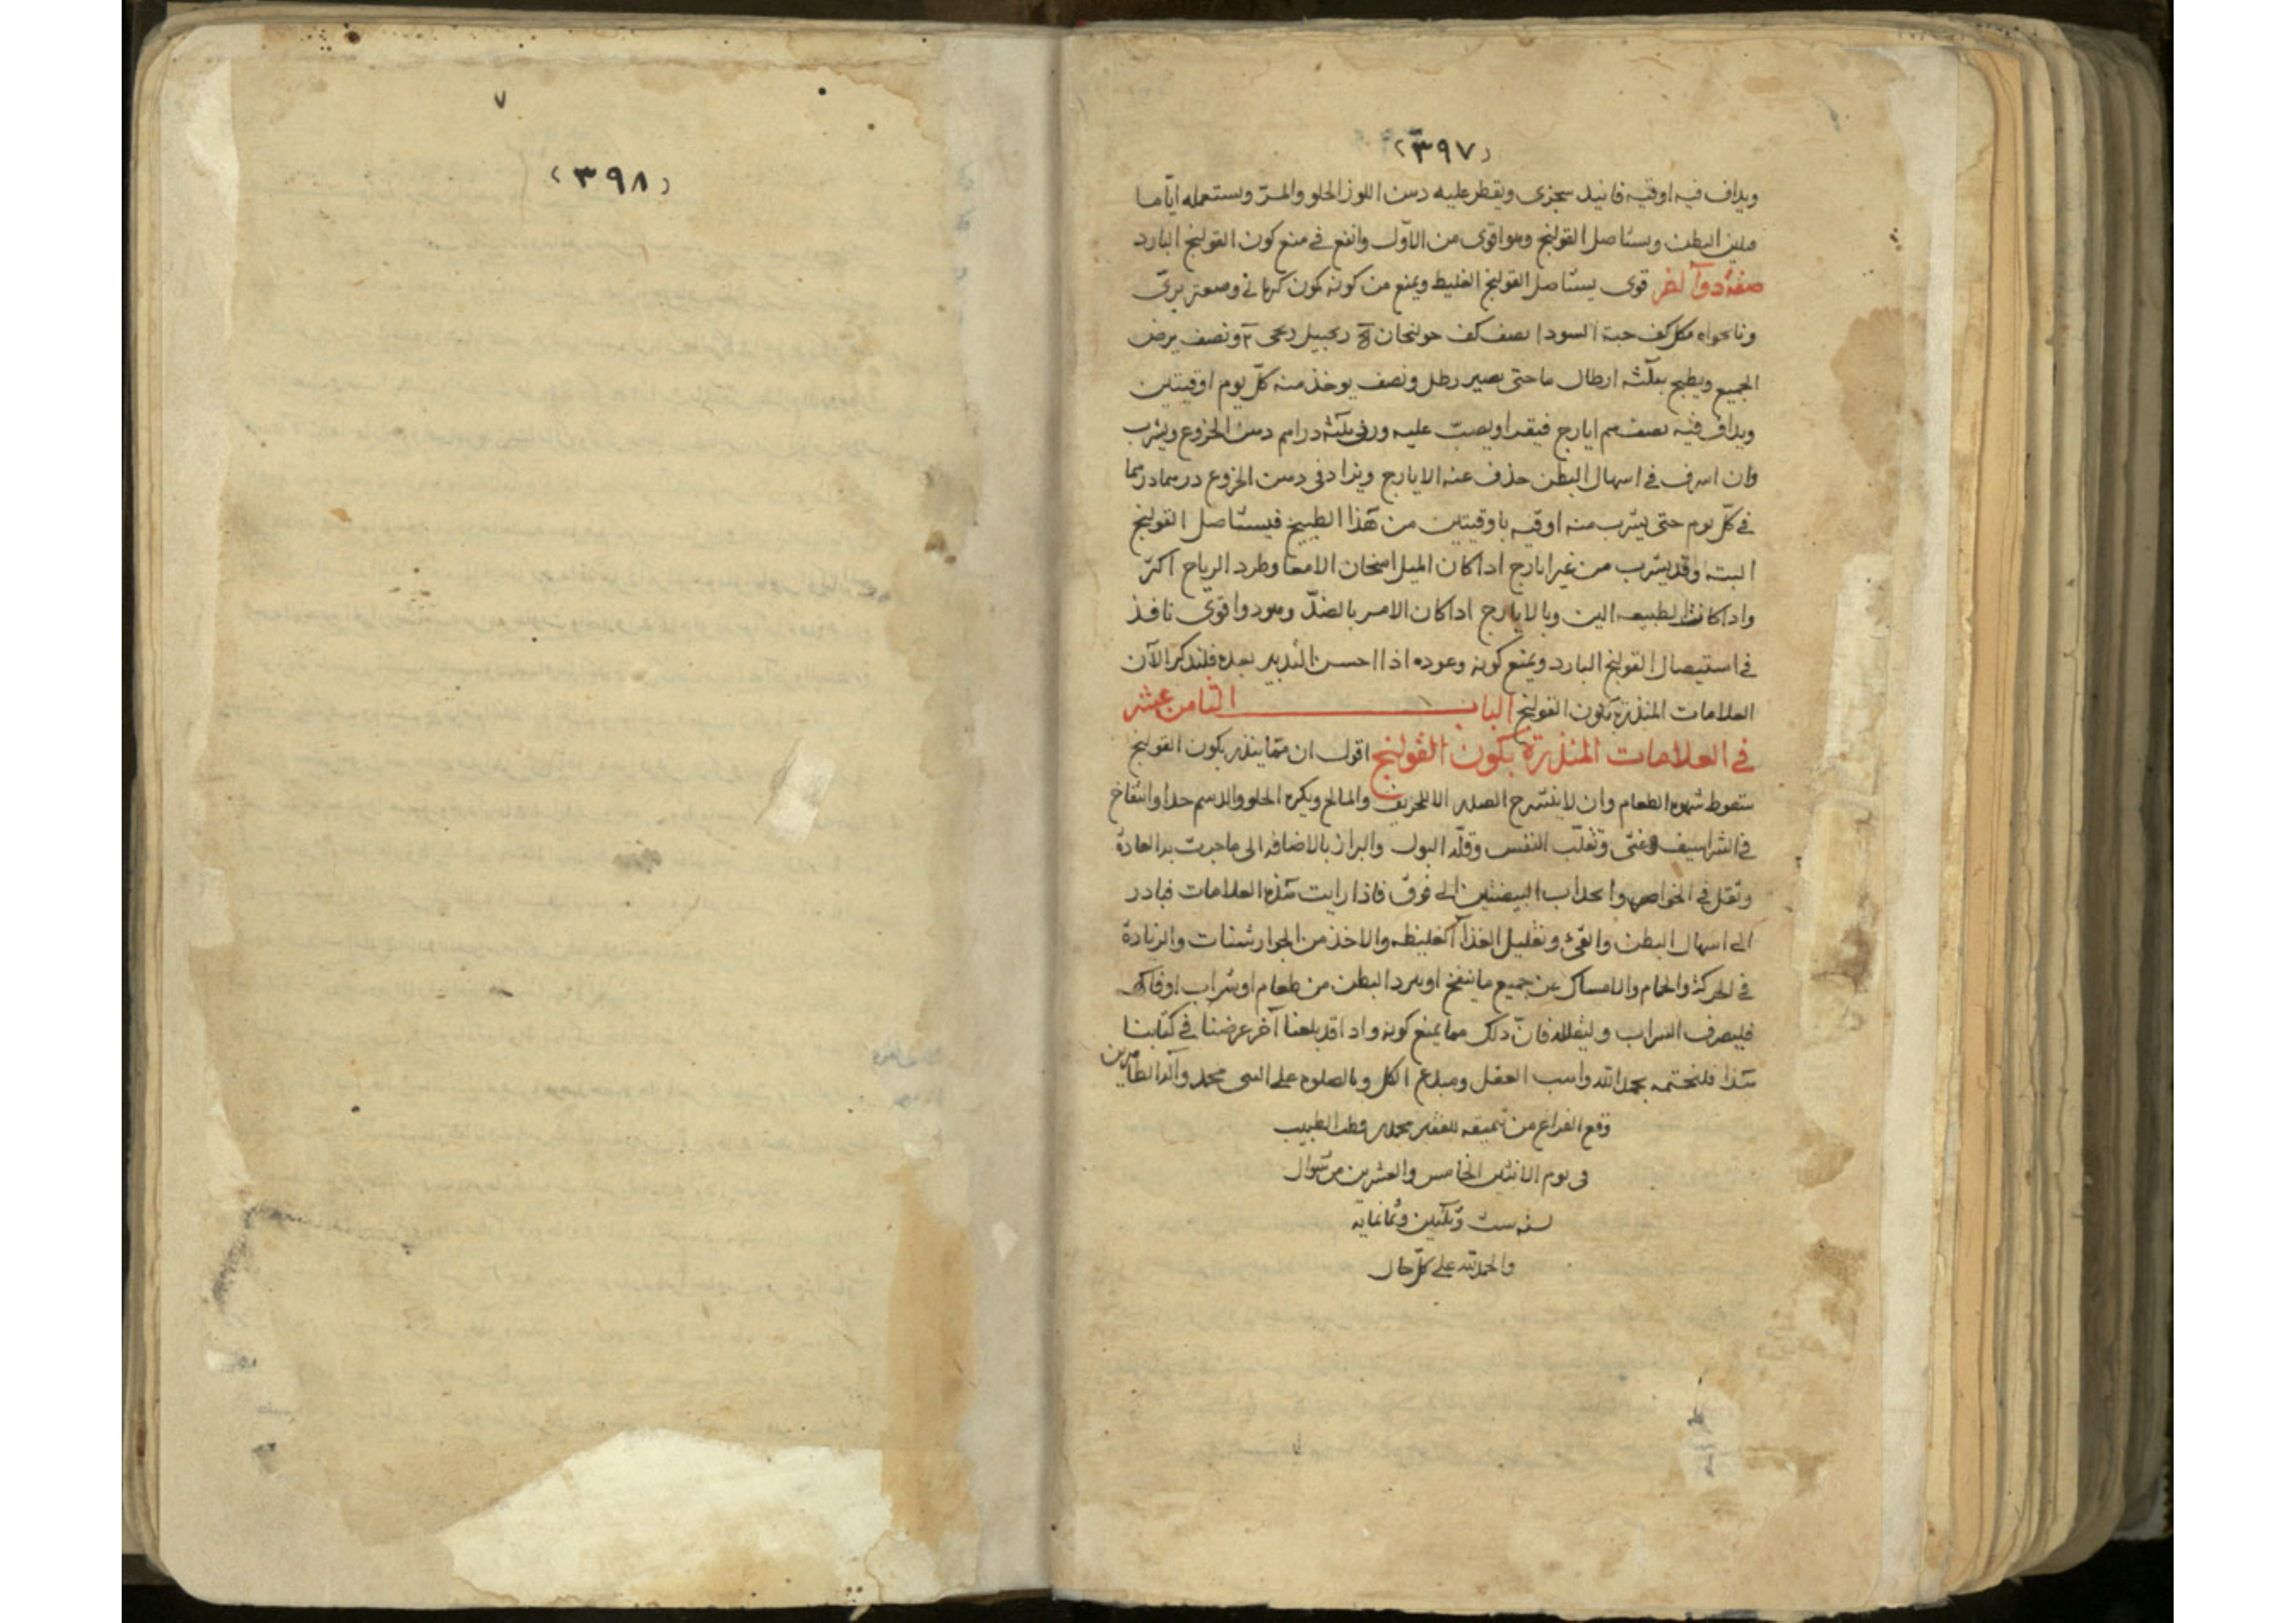 (٣٩٧)
ويداف فيه اوقيه فانيد سجزى ويقطر عليه دهن اللوز الحلو والمرّ ويستعمله ايّاما
ملين البطن ويستاصل القولنج وهو اقوى من الاوّل وانفع فى منع كون القولنج البارد
صفة دوآ آخر قوى يستاصل القولنج الغليظ ويمنع من كونه كمون كرمانى وصعتر برىّ
ونانخواه مكل كف حبة السودا نصف كف خولنجان زنجبيل ونصف يرض
الجميع ويطبخ بثلثه ارطال ما حتى يصير رطل ونصف يوخذ منه كلّ يوم اوقيتين
ويداف فيه نصف ايارج فيقرا ويصبّ عليه وزن ثلثه دراهم دهن الخروع ويشرب
وان اسرف فى اسهال البطن حذف عنه الايارج ويزاد فى دهن الخروع درهما درهما
فى كلّ يوم حتى يشرب منه اوقيه باوقيتين من هذا الطبيخ فيستاصل القولنج
البته وقد يشرب من غير ايارج اذا كان الميل اسخان الامعا وطرد الرياح اكثر
واذا كانت الطبيعه الين وبالايارج اذا كان الامر بالضدّ وهو دوا قوى نافذ
فى استيصال القولنج البارد ويمنع كونه وعوده اذا احسن التدبير بعده فلنذكر الآن
العلامات المنذرة بكون القولنج الباب الثامن عشر
فى العلامات المنذرة بكون القولنج اقول ان ممّا ينذر بكون القولنج
سقوط شهوة الطعام وان لا ينشرح الصدر الا للحريف والمالح ويكره الحلو والدسم جدا وانتفاخ
فى الشراسيف وغثى وتقلّب النفس وقلّة البول والبراز بالاضافة الى ما جرت به العادة
وثقل فى الخواصر وانجذاب البيضتين الى فوق فاذا رايت هذه العلامات فبادر
الى اسهال البطن والقىء وتقليل الغذآ الغليظه والاخذ من الجوارشنات والزيادة
فى الحركة والحمام والامساك عن جميع ما ينفخ او يبرد البطن من طعام او شراب او فاكهه
فليصرف الشراب وليقلله فانّ ذلك مما يمنع كونه واذا قد بلغنا آخر غرضنا فى كتابنا
هذا فلنختمه بحمد الله واهب العقل ومبدع الكل وبالصلوه على النبى محمد وآله الطاهرين
وقع الفراغ من تنميقه للفقير محمد الطبيب
فى يوم الاثنين الخامس والعشرين من شوال
لسنه ست وثلثين وثمانمايه
والحمد لله على كلّ حال
٧
(٣٩٨)